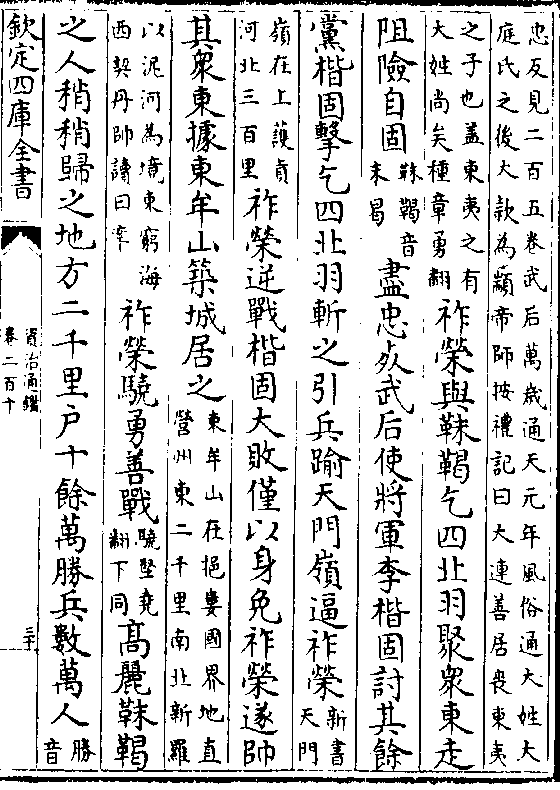 忠反見二百五卷武后萬歲通天元年風俗通大姓大
庭氏之後大款為顓帝師按禮記曰大連善居喪東夷
之子也蓋東夷之有
大姓尚矣種章勇翻
祚榮與靺鞨乞四北羽聚衆東走
阻險自固
靺鞨音
末曷
盡忠死武后使將軍李楷固討其餘
黨楷固擊乞四北羽斬之引兵踰天門嶺逼祚榮
新書
天門
嶺在上護真
河北三百里
祚榮逆戰楷固大敗僅以身免祚榮遂帥
其衆東據東牟山築城居之
東牟山在挹婁國界地直
營州東二千里南北新羅
以泥河為境東窮海
西契丹帥讀曰率
祚榮驍勇善戰
驍堅堯
翻下同
高麗靺鞨
之人稍稍歸之地方二千里户十餘萬勝兵數萬人
勝
音
欽定四庫全書
資治通鑑
卷二百十
三十